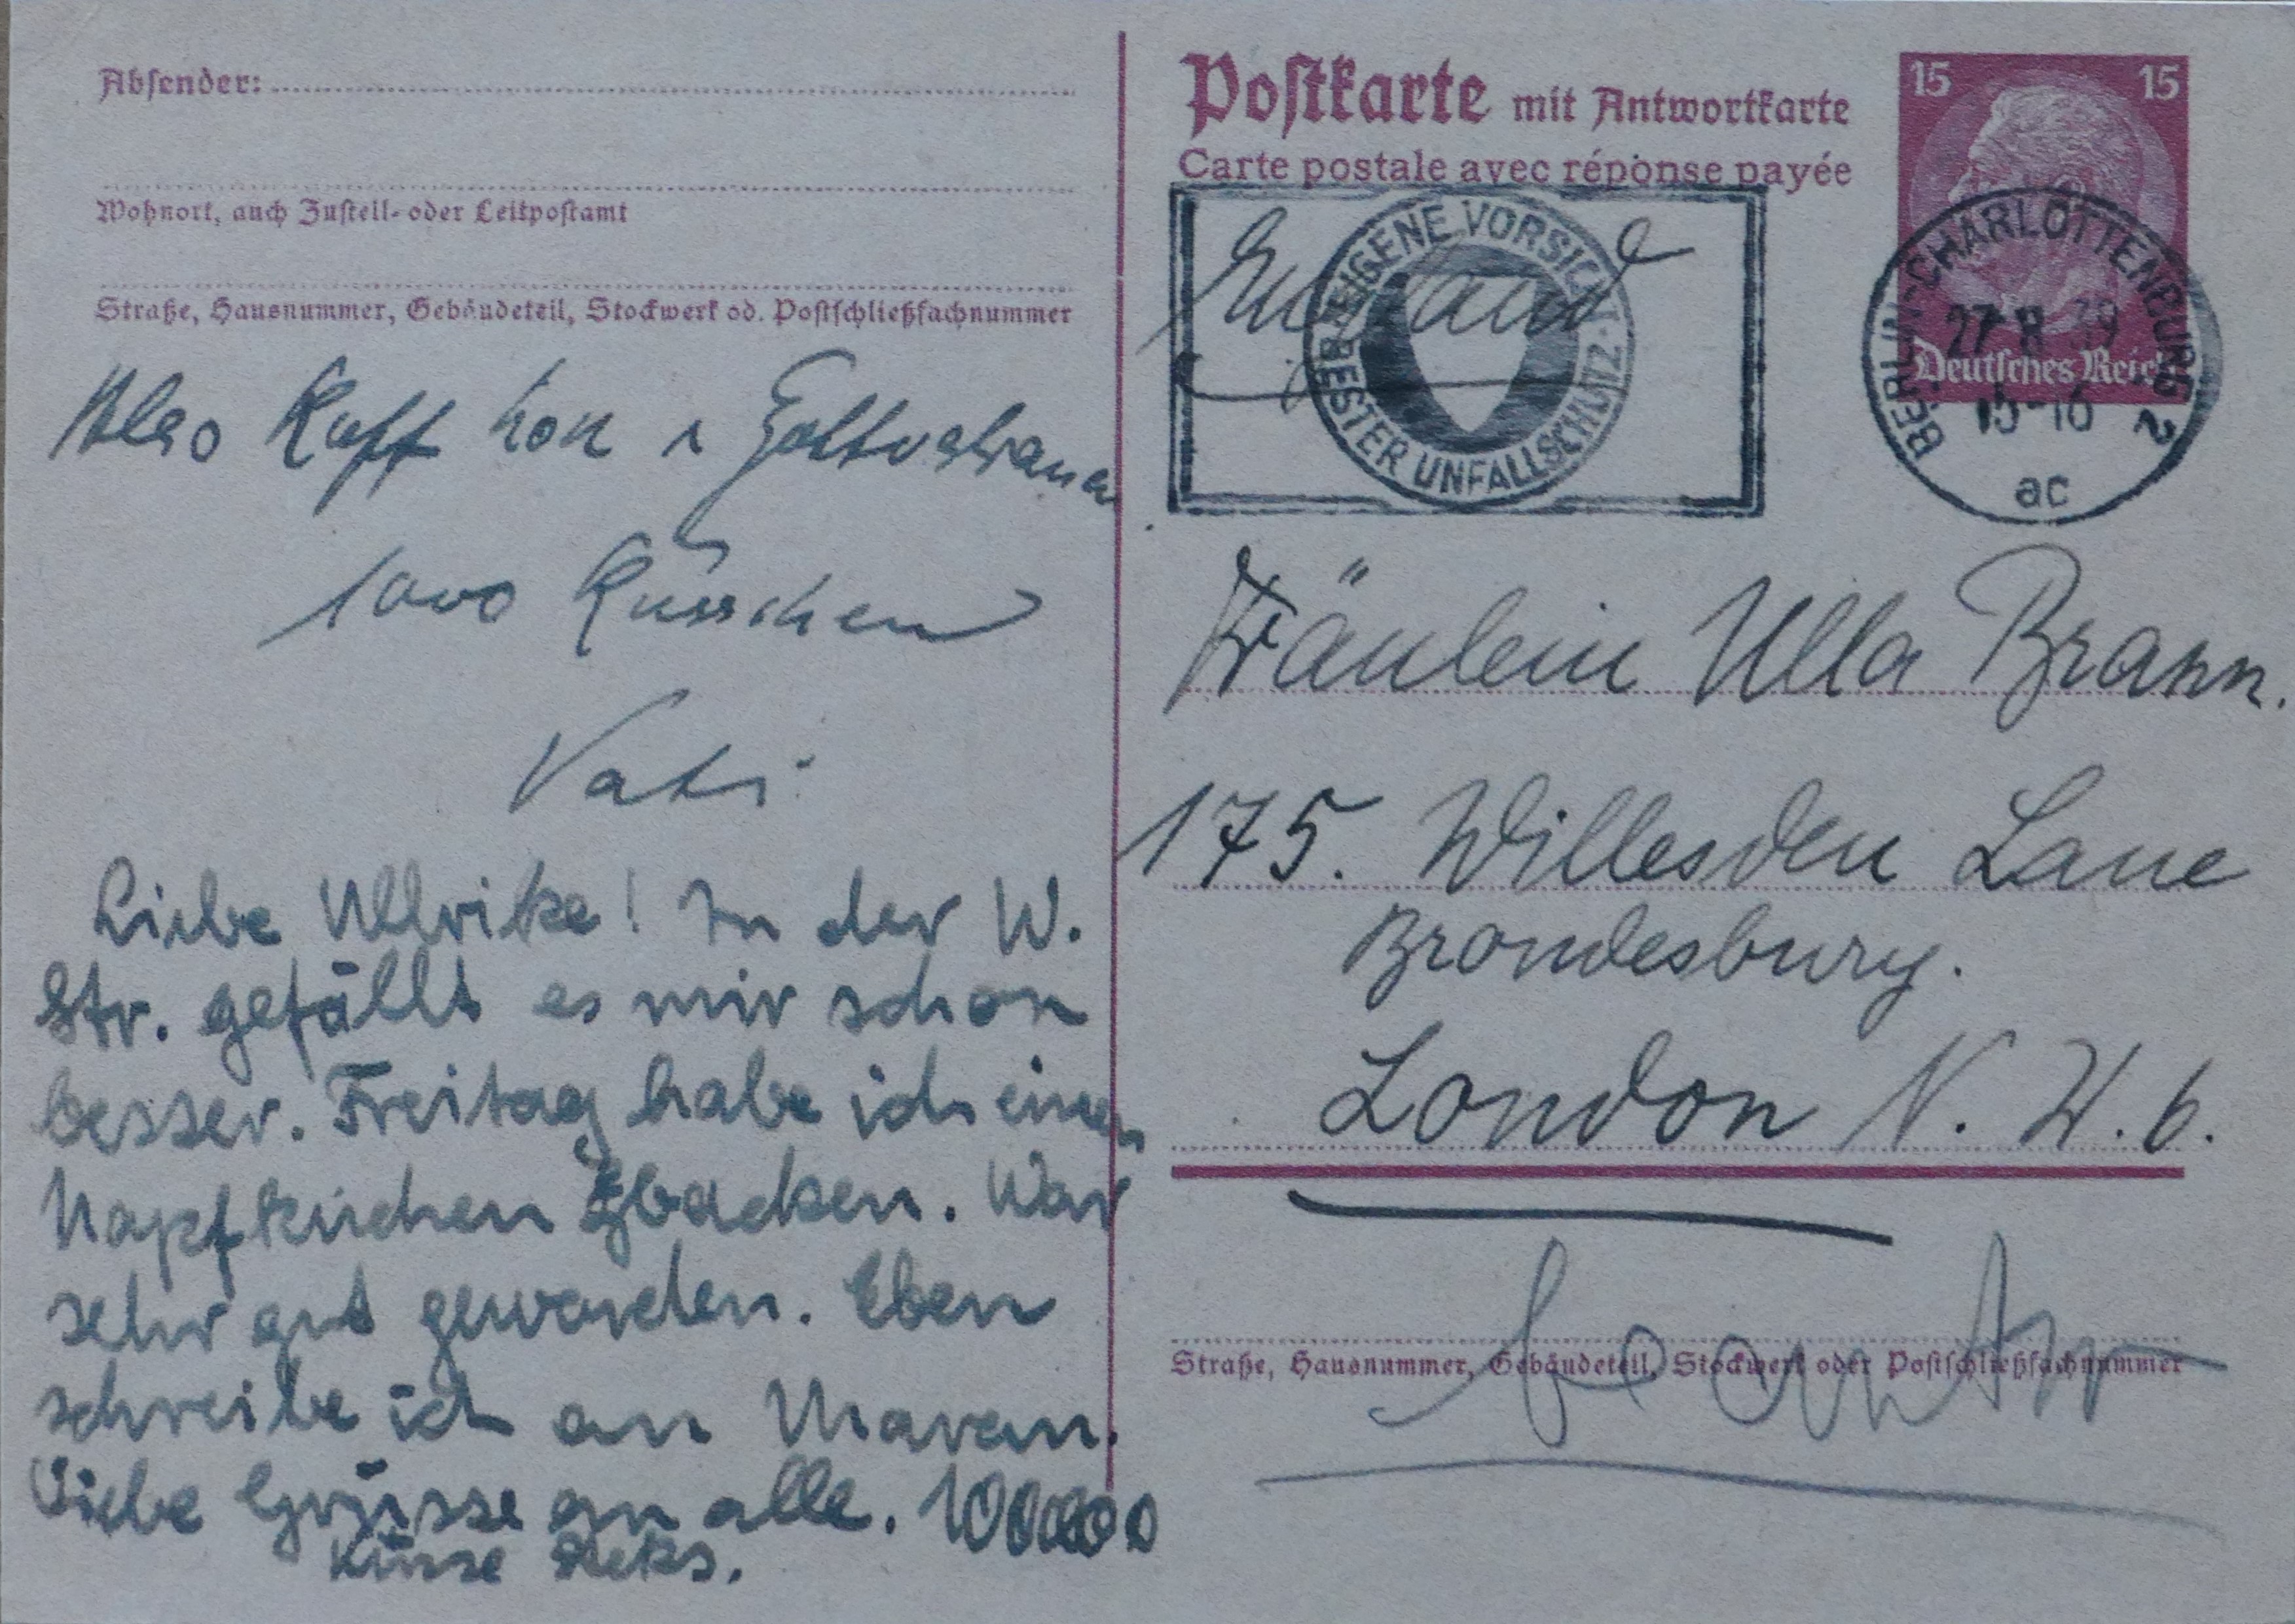 Absender:
Wohnort, auch Zustell- oder Leitpostamt
Straße, Hausnummer, Gebäudeteil, Stockwerk od. Postschließfachnummer
Also Kopf hoch
1000 Küsschen
Vati
Liebe Ullrike! In der W.
Str. gefällt es mir schon
besser. Freitag habe ich einen
Napfkuchen gbacken. War
sehr gut geworden. Eben
schreibe ich an
Liebe Grüsse an alle. 1000000
Küsse
Postkarte mit Antwortkarte
Carte postale avec réponse payée
15 15
Deutsches Reich
BERLIN-CHARLOTTENBURG 2
27 8 39
15-16
ac
EIGENE VORSICHT
BESTER UNFALLSCHUTZ
England
Fräulein Ulla Brann.
175. Willesden Lane
Brondesbury.
London N. W. 6.
Straße, Hausnummer, Gebäudeteil, Stockwerk oder Postschließfachnummer